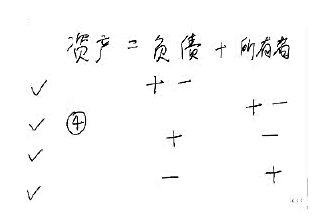 资产 = 负债 + 所有者
✓ + −
+ −
✓ ④
+ −
✓
− +
✓